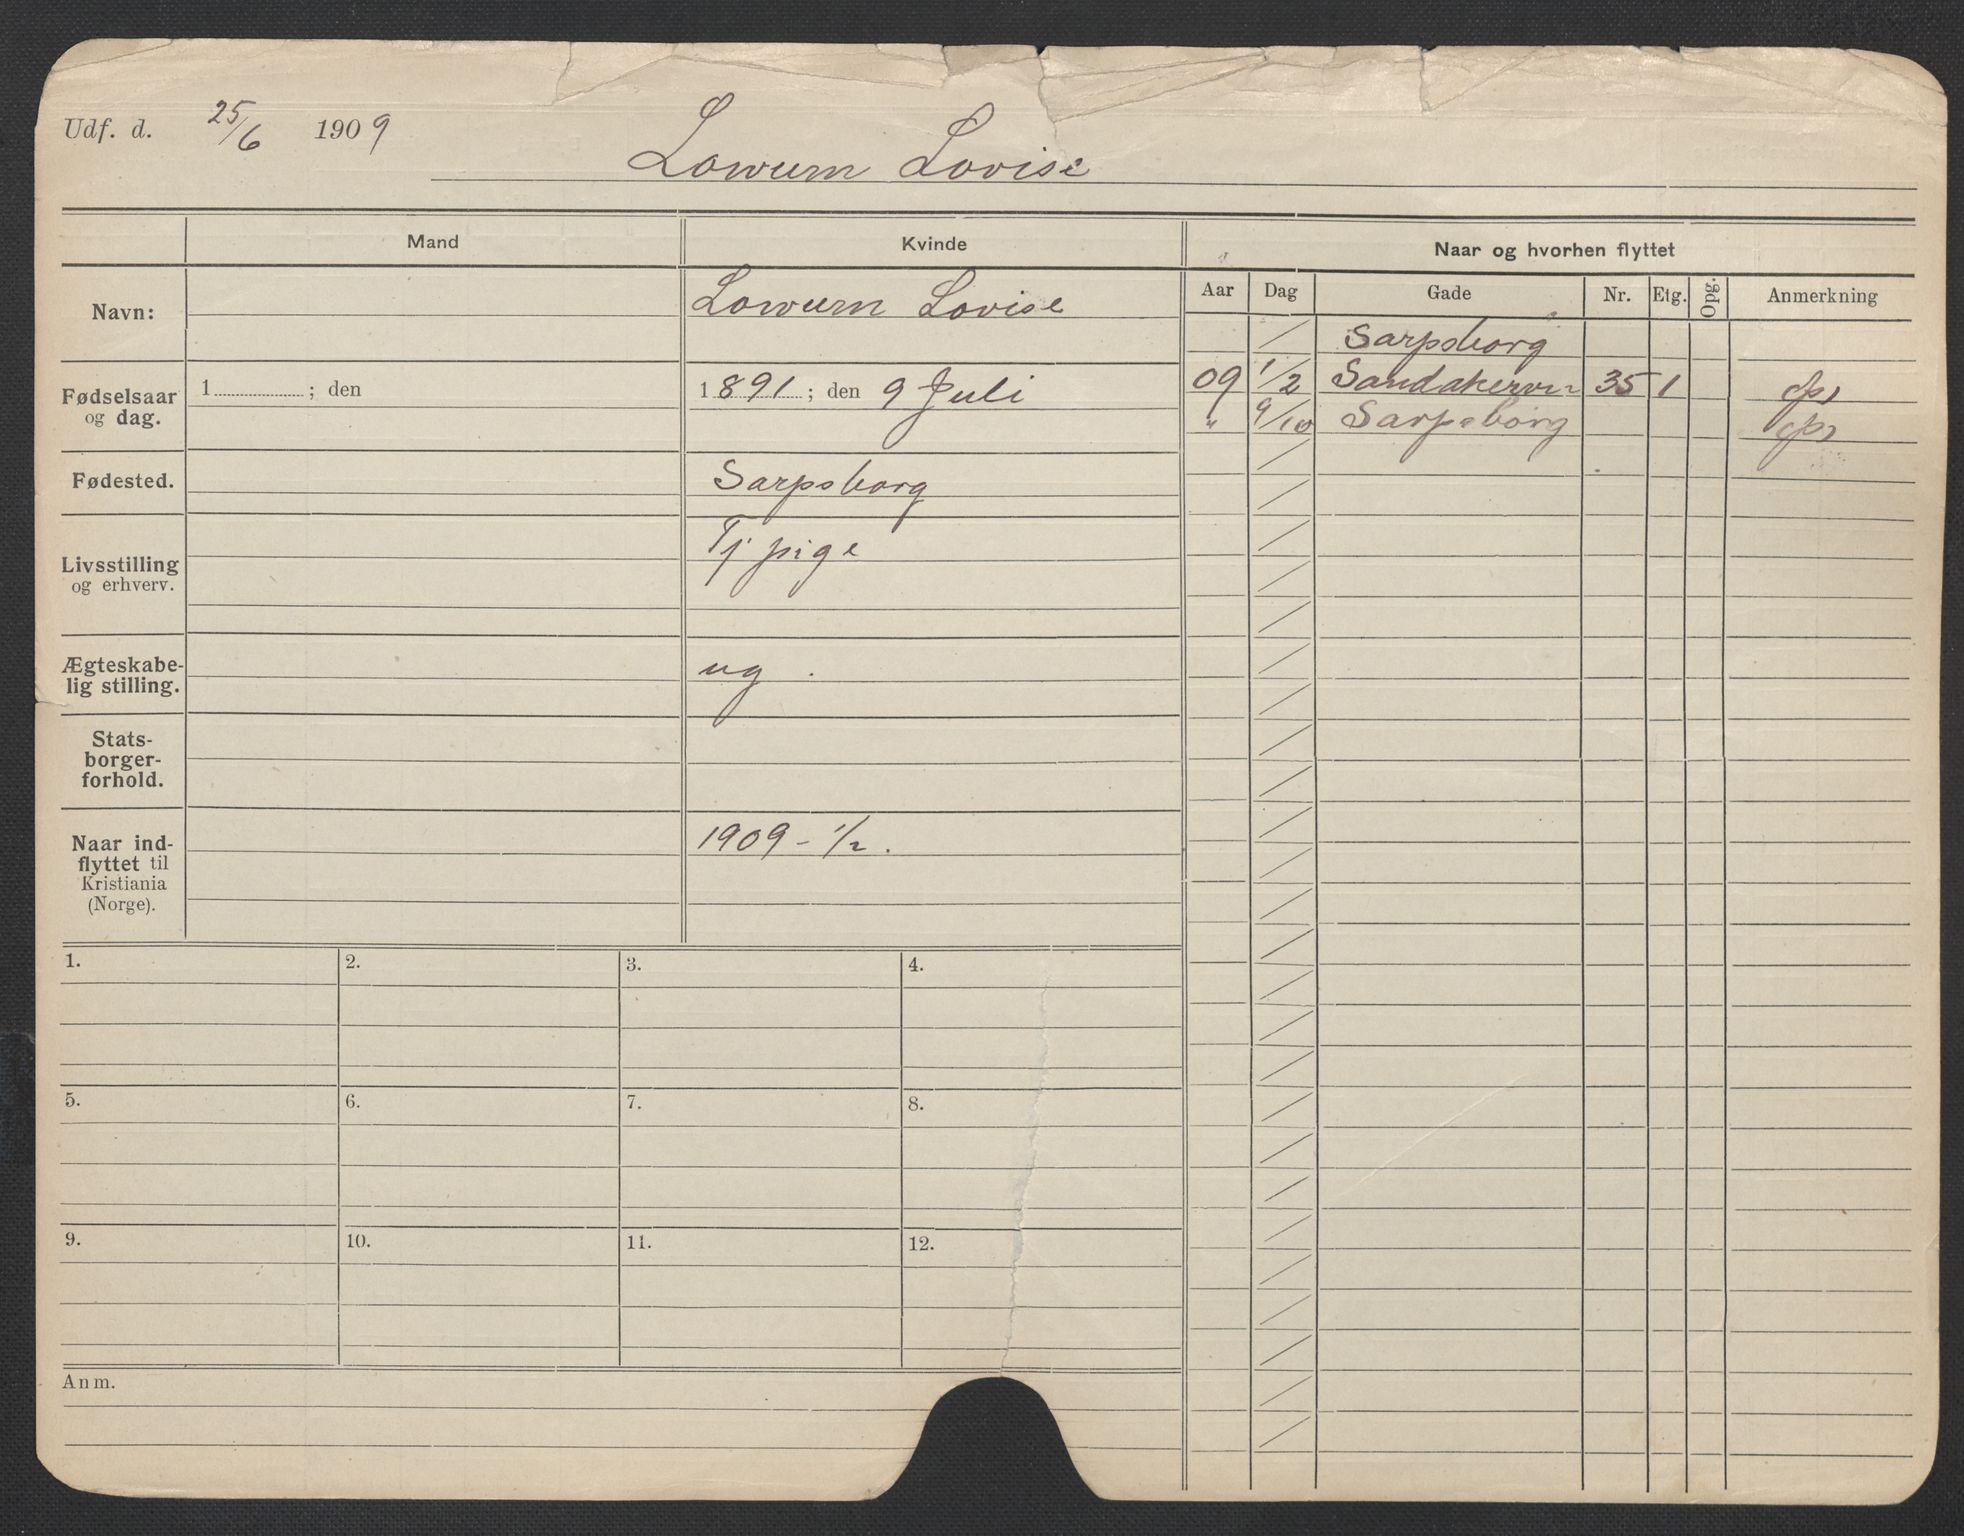 Udf. d. 25/6 1909
Lowum Lovise
Mand
Kvinde
Naar og hvorhen flyttet
Navn:
Lowum Lovise
Aar Dag Gade Nr. Etg. Opg. Anmerkning
Sarpsborg
09 1/2 Sandakervn 35 1
" 9/10 Sarpsborg
Fødselsaar
og dag.
1 ; den
1891 ; den 9 Juli
Fødested.
Sarpsborg
Livsstilling
og erhverv.
Tj pige
Ægteskabe-
lig stilling.
ug.
Stats-
borger-
forhold.
Naar ind-
flyttet til
Kristiania
(Norge).
1909 - 1/2.
1. 2. 3. 4.
5. 6. 7. 8.
9. 10. 11. 12.
Anm.